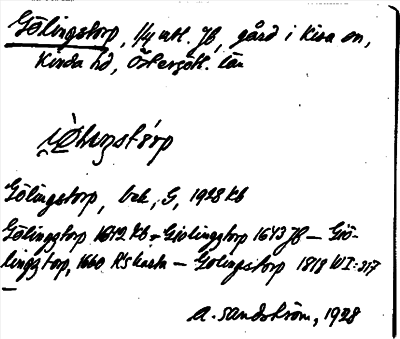 Gölingstorp, 1/4 mtl. Jb, gård i Kisa sn,
Kinda hd, Östergötl. län
Gölingstorp, bek, G, 1928 Kb
Gölinggtorp 1642 Kb - Giolinggtorp 1643 Jb - Giö-
linggtorp, 1660 Kskarta - Gölingstorp 1818 WI:217
A. Sandström, 1928